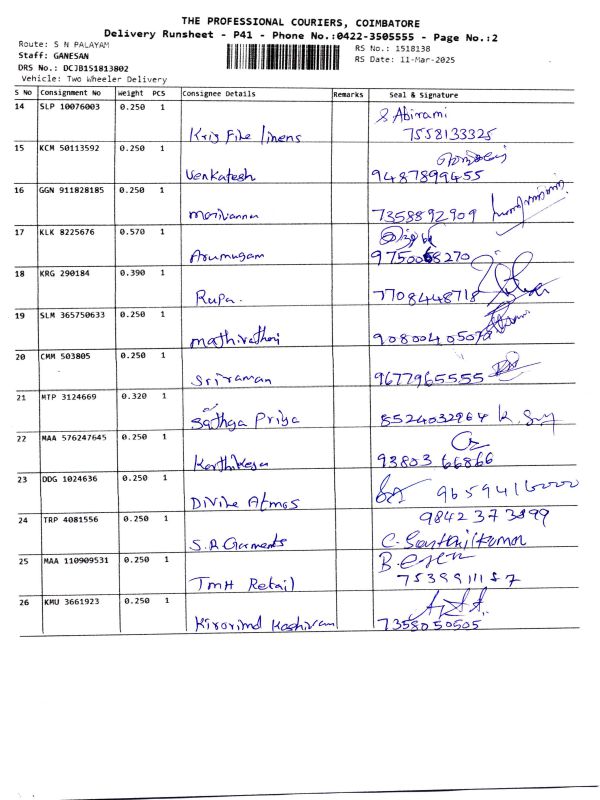 THE PROFESSIONAL COURIERS, COIMBATORE
Delivery Runsheet - P41 - Phone No.:0422-3505555 - Page No.:2
Route: S N PALAYAM
RS No.: 1518138
Staff: GANESAN
RS Date: 11-Mar-2025
DRS No.: DCJB151813802
Vehicle: Two Wheeler Delivery
S No Consignment No Weight PCS Consignee Details Remarks Seal & Signature
14 SLP 10076003 0.250 1
S Abirami
Kris Fine linens 7558133325
15 KCM 50113592 0.250 1
Venkatesh 9487899455
16 GGN 911828185 0.250 1
Marivannan 7358892909
17 KLK 8225676 0.570 1
Arumugam
18 KRG 290184 0.390 1
Rupa. 7708448718
19 SLM 365750633 0.250 1
20 CMM 503805 0.250 1
Sriraman 9677965555
21 MTP 3124669 0.320 1
Sathya Priya 8524032964
22 MAA 576247645 0.250 1
Karthikeya 93803 66866
23 DDG 1024636 0.250 1
Divine Atmos
24 TRP 4081556 0.250 1
9842373899
S.R Garments C. Senthilkumar
25 MAA 110909531 0.250 1
TMH Retail
26 KMU 3661923 0.250 1
7358050505